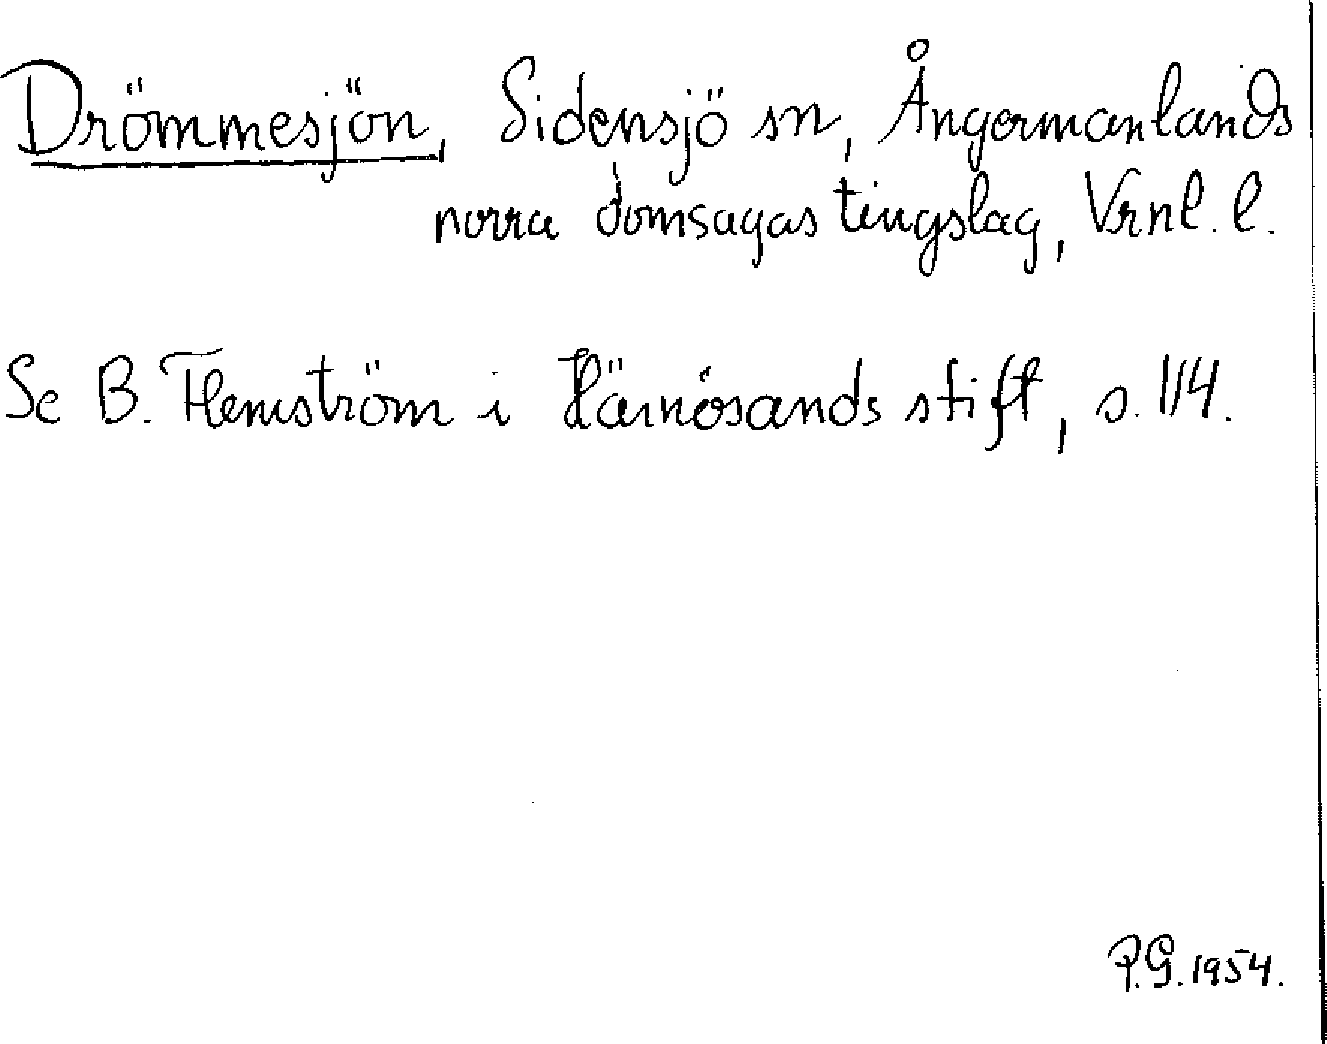 Drömmesjön, Sidensjö sn, Ångermanlands
norra domsagas tingslag, Vrnl. l.
Se B. Hemström i Härnösands stift, s. 114.
P.G. 1954.